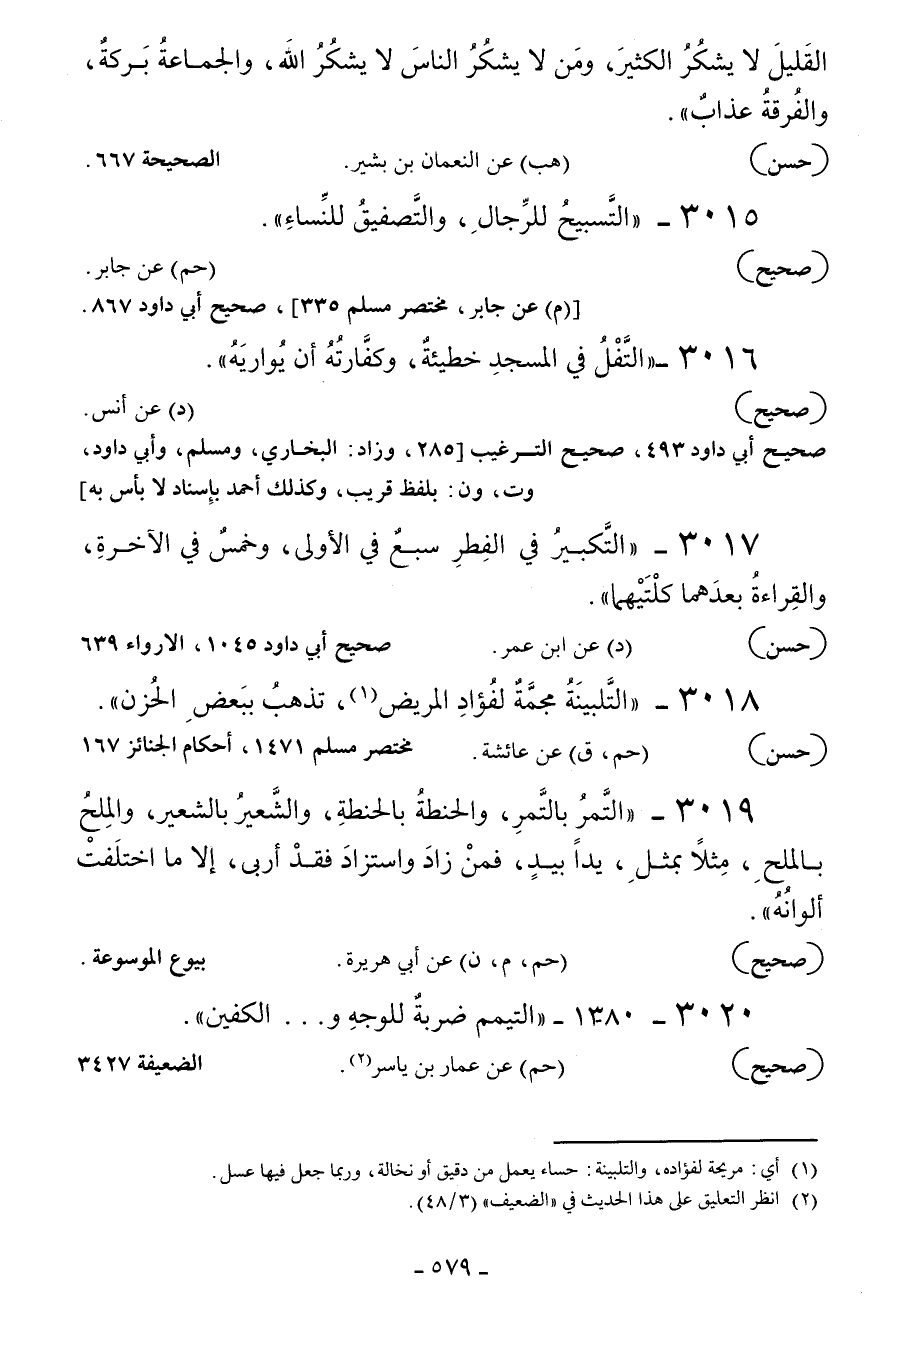 القَليلَ لا يشكُرُ الكثيرَ، ومَن لا يشكُرُ الناسَ لا يشكُرُ اللهَ، والجماعةُ بَركةٌ،
والفُرقةُ عذابٌ».
(حسن) (هب) عن النعمان بن بشير. الصحيحة ٦٦٧.
٣٠١٥ ـ «التَّسبيحُ للرِّجالِ، والتَّصفيقُ للنِّساءِ».
(صحيح) (حم) عن جابر.
[(م) عن جابر، مختصر مسلم ٣٣٥]، صحيح أبي داود ٨٦٧.
٣٠١٦ ـ «التَّفْلُ في المسجدِ خطيئةٌ، وكفَّارتُهُ أن يُواريَهُ».
(صحيح) (د) عن أنس.
صحيح أبي داود ٤٩٣، صحيح الترغيب [٢٨٥، وزاد: البخاري، ومسلم، وأبي داود،
وت، ون: بلفظ قريب، وكذلك أحمد بإسناد لا بأس به]
٣٠١٧ ـ «التَّكبيرُ في الفِطرِ سبعٌ في الأولى، وخمسٌ في الآخرةِ،
والقِراءةُ بعدَهما كلْتَيْهِما».
(حسن) (د) عن ابن عمر. صحيح أبي داود ١٠٤٥، الارواء ٦٣٩
٣٠١٨ ـ «التَّلبينَةُ مجمَّةٌ لفُؤادِ المريض(١)، تذهبُ ببَعضِ الحُزن».
(حسن) (حم، ق) عن عائشة. مختصر مسلم ١٤٧١، أحكام الجنائز ١٦٧
٣٠١٩ ـ «التَّمرُ بالتَّمرِ، والحنطةُ بالحنطةِ، والشَّعيرُ بالشعيرِ، والمِلحُ
بالملحِ، مِثلاً بمثلٍ، يداً بيدٍ، فمنْ زادَ واستزادَ فقدْ أربى، إلا ما اختلَفتْ
ألوانُهُ».
(صحيح) (حم، م، ن) عن أبي هريرة. بيوع الموسوعة.
٣٠٢٠ ـ ١٣٨٠ ـ «التيمم ضربةٌ للوجهِ و... الكفين».
(صحيح) (حم) عن عمار بن ياسر(٢). الضعيفة ٣٤٢٧
(١) أي: مريحة لفؤاده، والتلبينة: حساء يعمل من دقيق أو نخالة، وربما جعل فيها عسل.
(٢) انظر التعليق على هذا الحديث في «الضعيف» (٤٨/٣).
ـ ٥٧٩ ـ